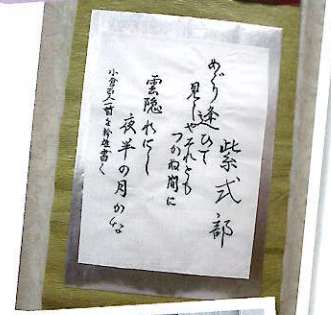 紫式部
めぐり逢ひて
見しやそれとも
つかぬ間に
雲隠れにし
夜半の月かな
小倉百人一首を鈴生書く